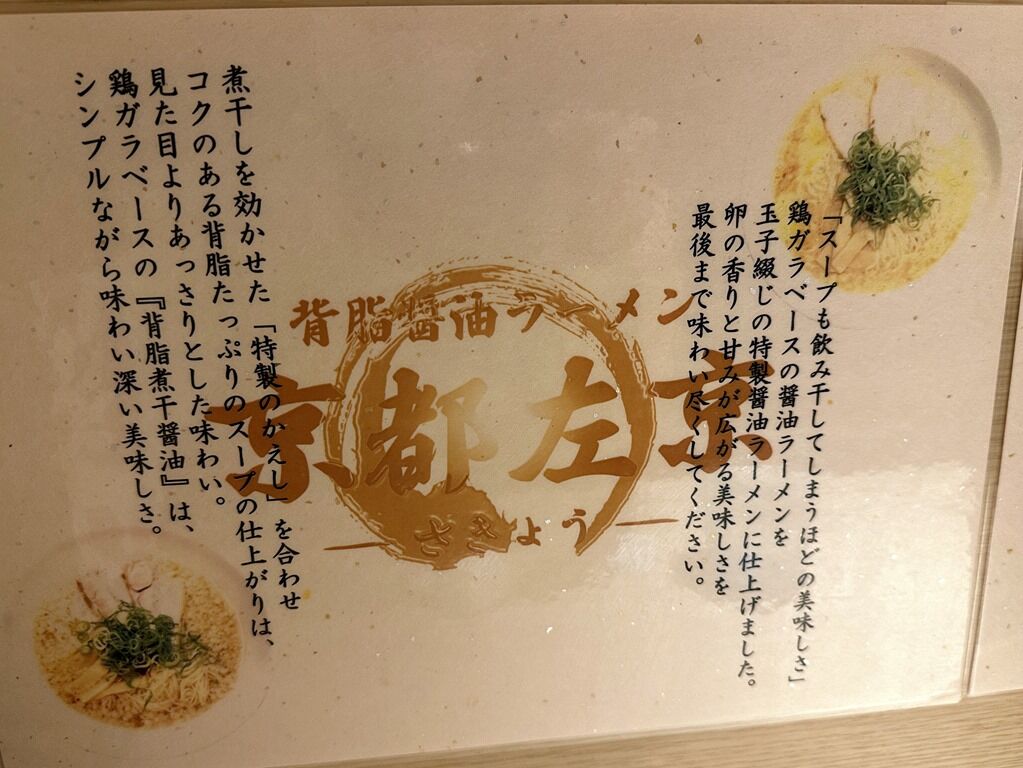 「スープも飲み干してしまうほどの美味しさ」
鶏ガラベースの醤油ラーメンを
玉子綴じの特製醤油ラーメンに仕上げました。
卵の香りと甘みが広がる美味しさを
最後まで味わい尽くしてください。
背脂醤油ラーメン
京都左京
さきょう
煮干しを効かせた「特製のかえし」を合わせ
コクのある背脂たっぷりのスープの仕上がりは、
見た目よりあっさりとした味わい。
鶏ガラベースの『背脂煮干醤油』は、
シンプルながら味わい深い美味しさ。